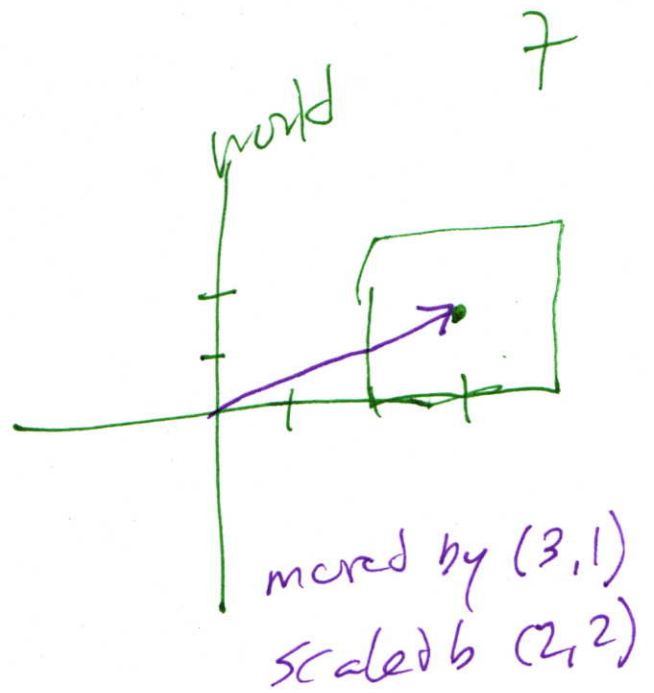 7
world
moved by (3,1)
scaled b (2,2)